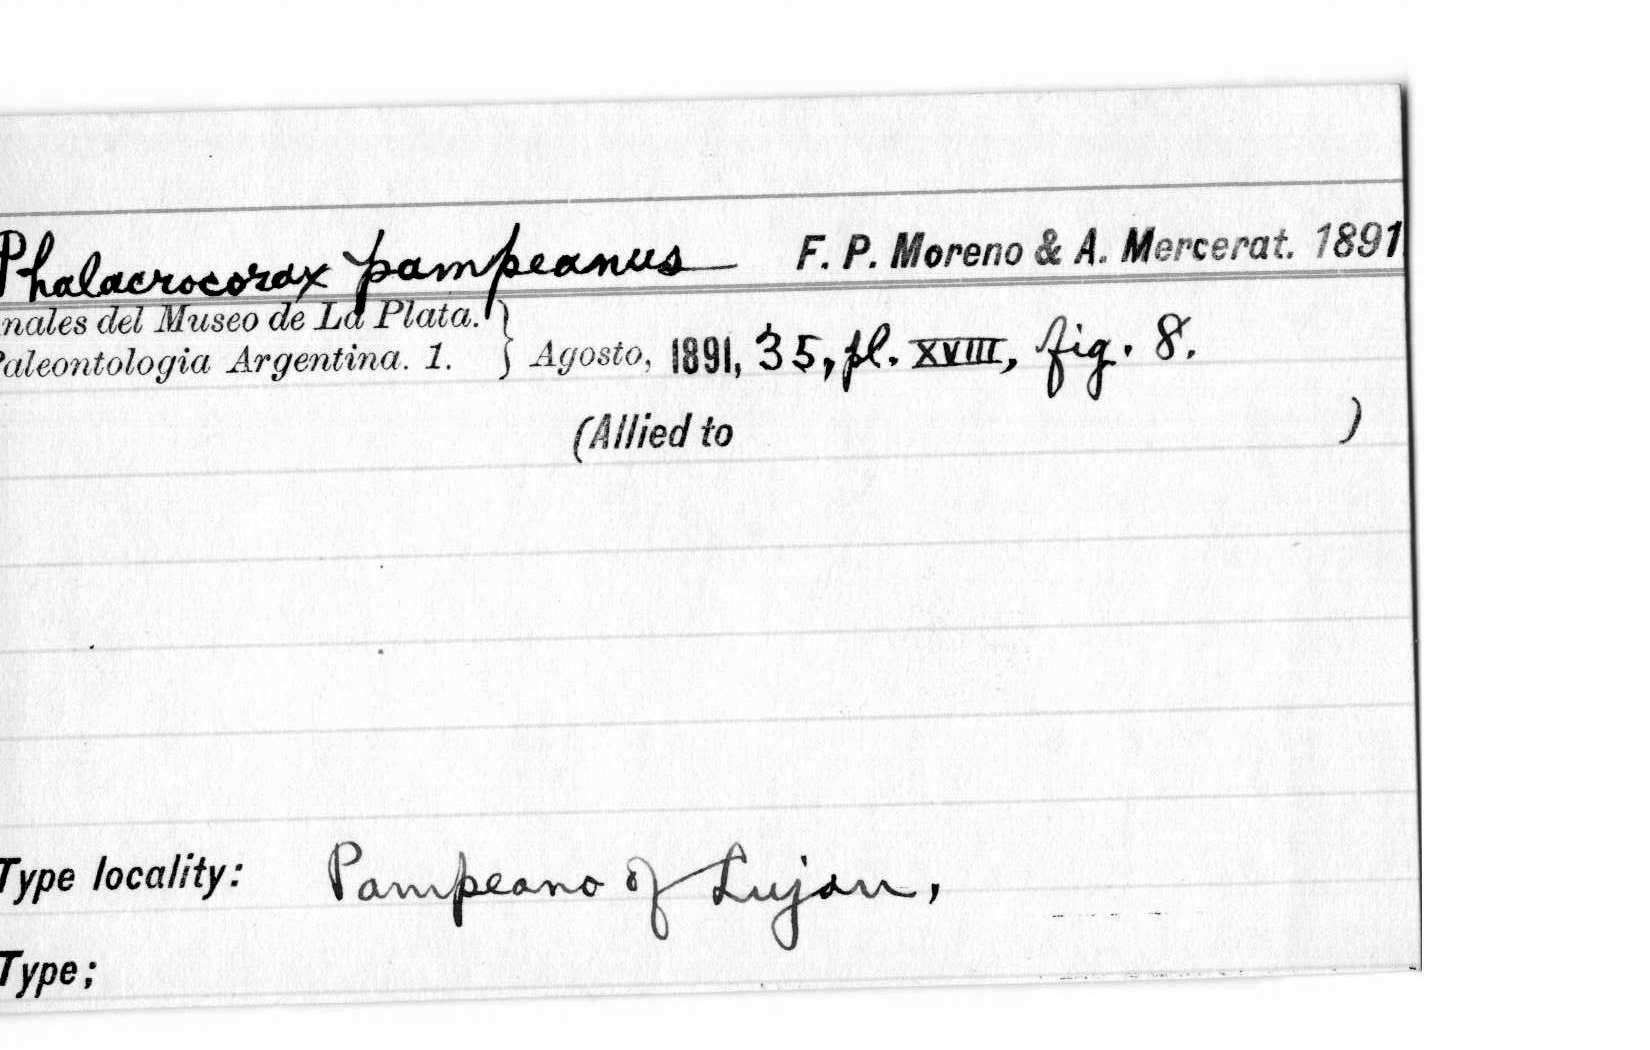 Phalacrocorax pampeanus F. P. Moreno & A. Mercerat. 1891.
nales del Museo de La Plata. }
Paleontologia Argentina. 1. } Agosto, 1891, 35, pl. XVIII, fig. 8.
(Allied to )
Type locality: Pampeano of Lujan,
Type;